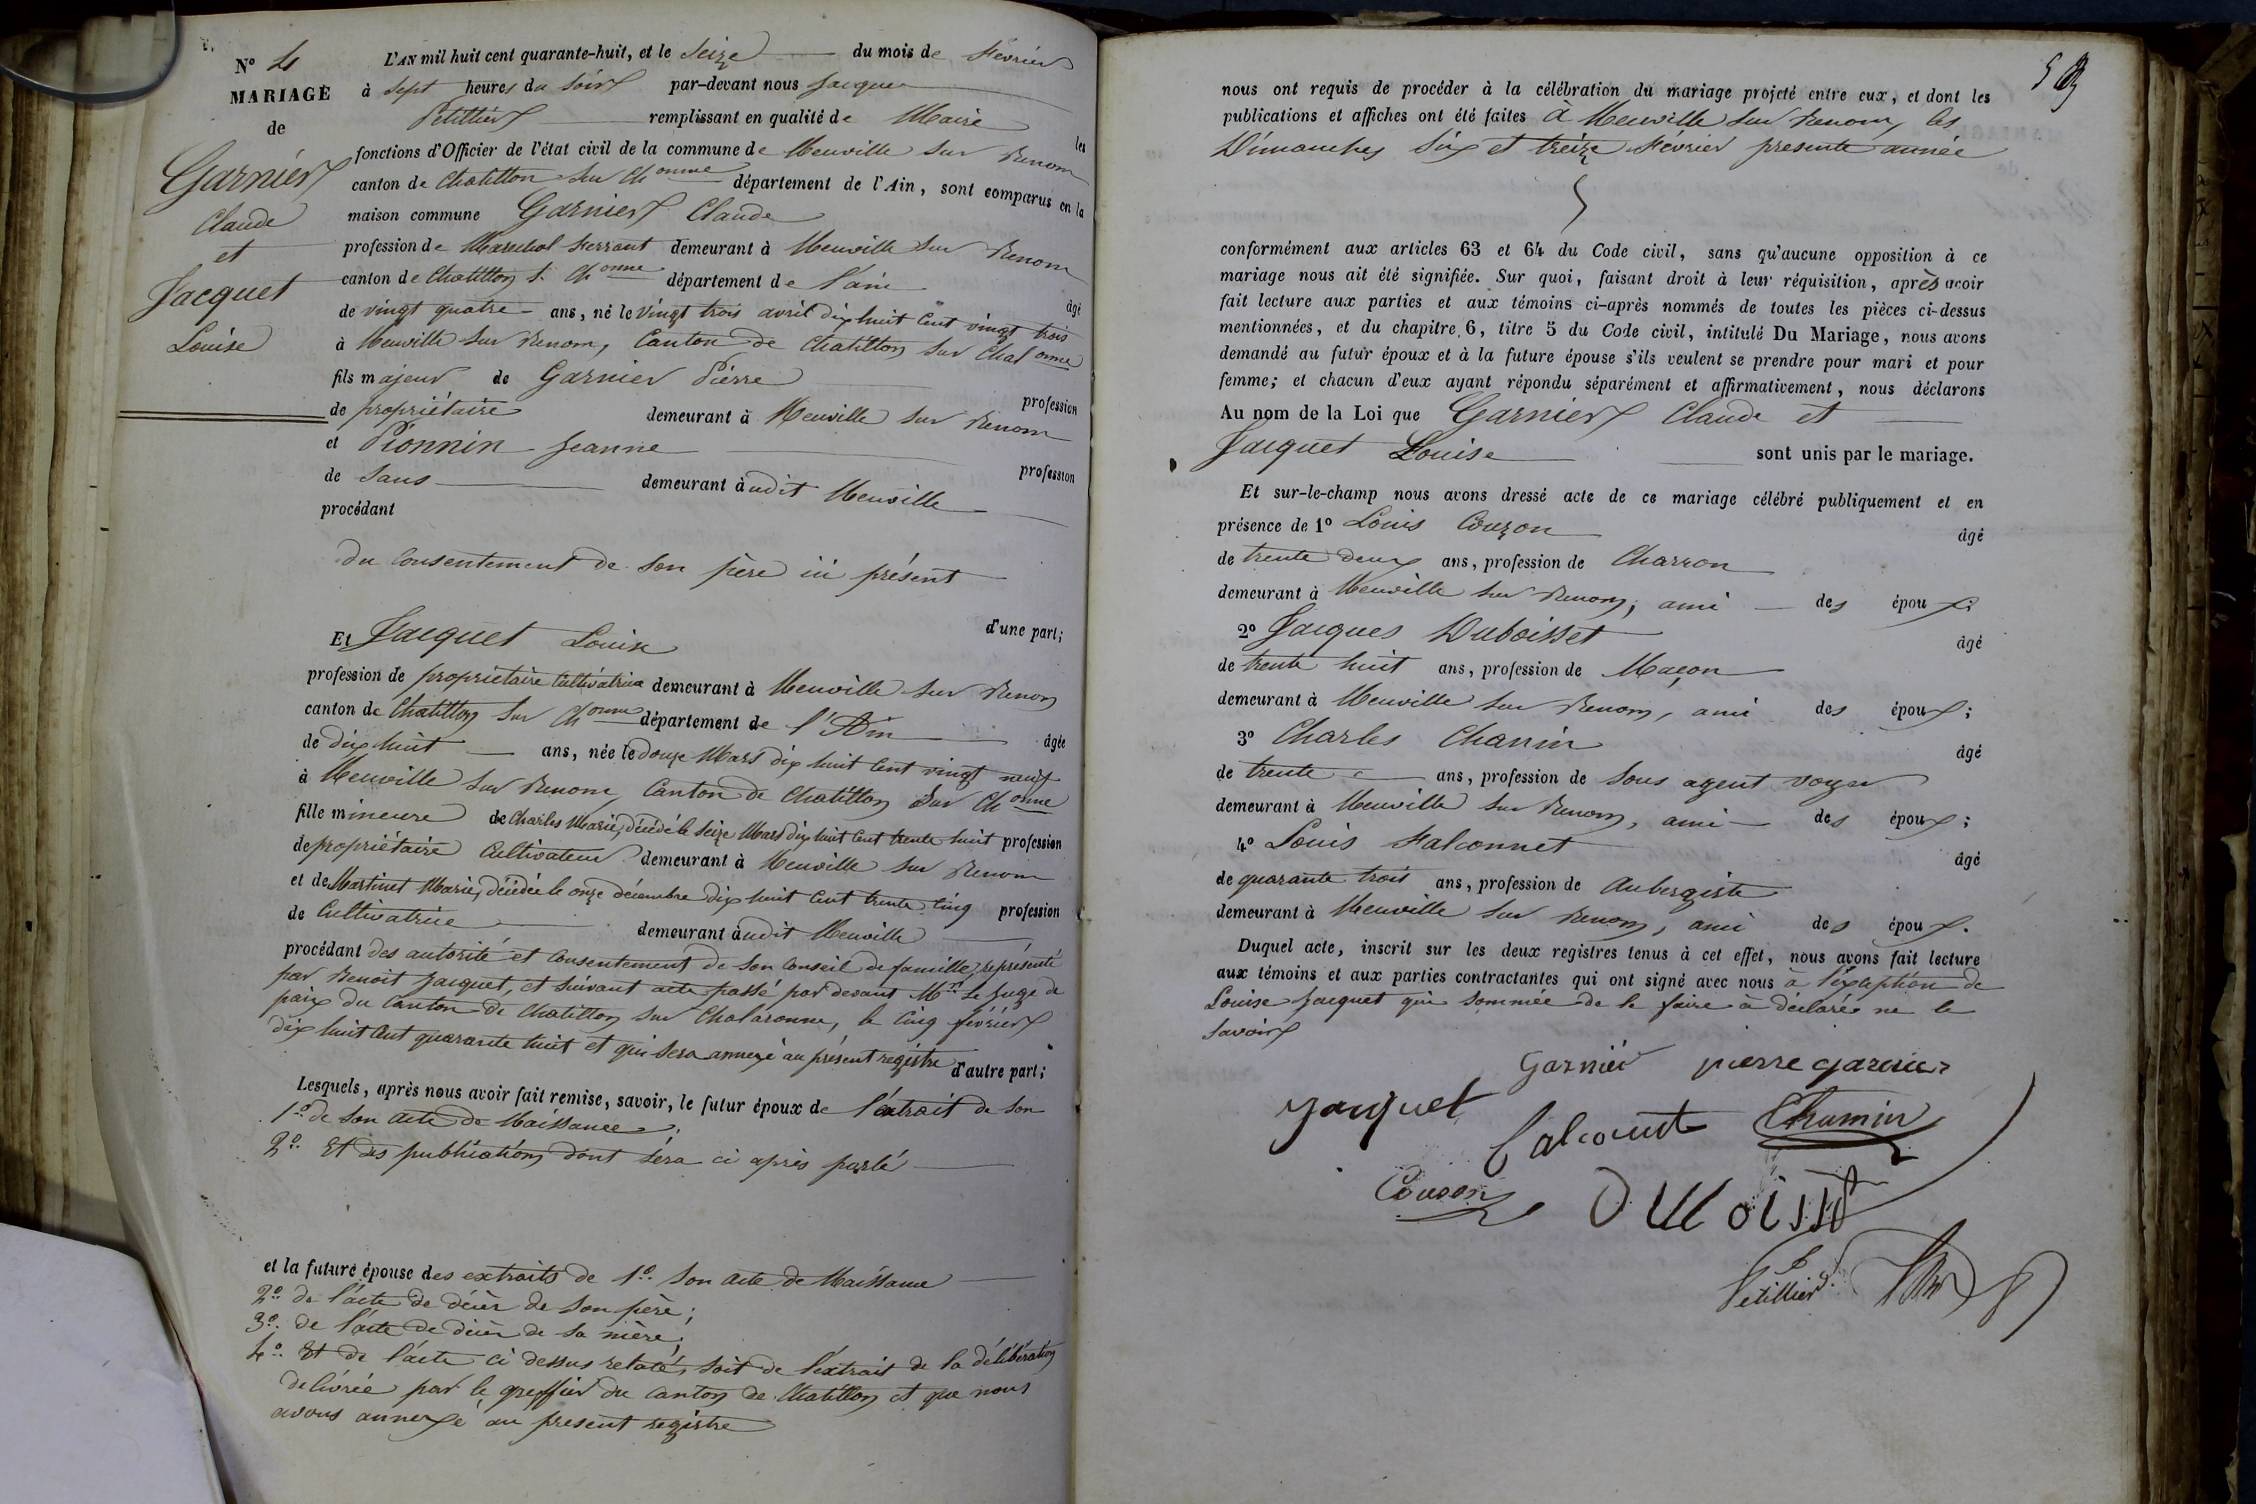 N° 4
MARIAGE
de
Garnier
Claude
et
Jacquet
Louise
L'AN mil huit cent quarante-huit, et le Seize du mois de Février
à Sept heures du Soir par-devant nous Jacques
Petillier remplissant en qualité de Maire les
fonctions d'Officier de l'état civil de la commune de Neuville sur Renom
canton de Chatillon sur Ch onne département de l'Ain, sont comparus en la
maison commune Garnier Claude
profession de Marechal ferrant demeurant à Neuville sur Renom
canton de Chatillon s. Ch onne département de l'ain âgé
de vingt quatre ans, né le vingt trois avril dix huit cent vingt trois
à Neuville sur Renom, Canton de Chatillon sur Chal onne
fils majeur de Garnier Pierre profession
de propriétaire demeurant à Neuville sur Renom
et Pionnin Jeanne profession
de Sans demeurant audit Neuville
procédant
du consentement de son père ici présent
d'une part;
Et Jacquet Louise
profession de propriétaire Cultivatrice demeurant à Neuville sur Renom
canton de Chatillon sur Ch onne département de l'Ain âgée
de dix huit ans, née le douze Mars dix huit cent vingt neuf
à Neuville sur Renom, Canton de Chatillon sur Ch onne
fille mineure de Charles Marie, décédé le seize Mars dix huit cent trente huit profession
de propriétaire Cultivateur demeurant à Neuville sur Renom
et de Martinet Marie, décédée le onze décembre dix huit cent trente cinq profession
de Cultivatrice demeurant audit Neuville
procédant des autorité et consentement de son conseil de famille, représenté
par Benoit Jacquet, et suivant acte passé par devant Mr. Le Juge de
paix du Canton de Chatillon sur Chalaronne, le cinq février
dix huit cent quarante huit et qui sera annexé au présent registre d'autre part;
Lesquels, après nous avoir fait remise, savoir, le futur époux de l'extrait de son
1° de son acte de Naissance;
2° Et des publications dont sera ci après parlé
et la future épouse des extraits de 1° son acte de Naissance
2° de l'acte de décès de son père;
3° de l'acte de décès de sa mère;
4° Et de l'acte ci dessus relaté, soit de l'extrait de la délibération
delivrée par le greffier du canton de Chatillon et que nous
avons annexé au present registre
nous ont requis de procéder à la célébration du mariage projeté entre eux, et dont les
publications et affiches ont été faites à Neuville sur Renom, les
Dimanches Six et treize Février presente année
conformément aux articles 63 et 64 du Code civil, sans qu'aucune opposition à ce
mariage nous ait été signifiée. Sur quoi, faisant droit à leur réquisition, après avoir
fait lecture aux parties et aux témoins ci-après nommés de toutes les pièces ci-dessus
mentionnées, et du chapitre 6, titre 5 du Code civil, intitulé Du Mariage, nous avons
demandé au futur époux et à la future épouse s'ils veulent se prendre pour mari et pour
femme; et chacun d'eux ayant répondu séparément et affirmativement, nous déclarons
Au nom de la Loi que Garnier Claude et
Jacquet Louise sont unis par le mariage.
Et sur-le-champ nous avons dressé acte de ce mariage célébré publiquement et en
présence de 1° Louis Couzon âgé
de trente deux ans, profession de Charron
demeurant à Neuville sur Renom, ami des époux;
2° Jacques Duboisset âgé
de trente huit ans, profession de Maçon
demeurant à Neuville sur Renom, ami des époux;
3° Charles Chanin âgé
de trente ans, profession de Sous agent voyer
demeurant à Neuville sur Renom, ami des époux;
4° Louis Falconnet âgé
de quarante trois ans, profession de Aubergiste
demeurant à Neuville sur Renom, ami des époux.
Duquel acte, inscrit sur les deux registres tenus à cet effet, nous avons fait lecture
aux témoins et aux parties contractantes qui ont signé avec nous à l'exception de
Louise Jacquet qui sommée de le faire à déclarée ne le
savoir
Garnier pierre garnier
Jacquet Falconnet Chamin
Couson Duboisset
Petillier